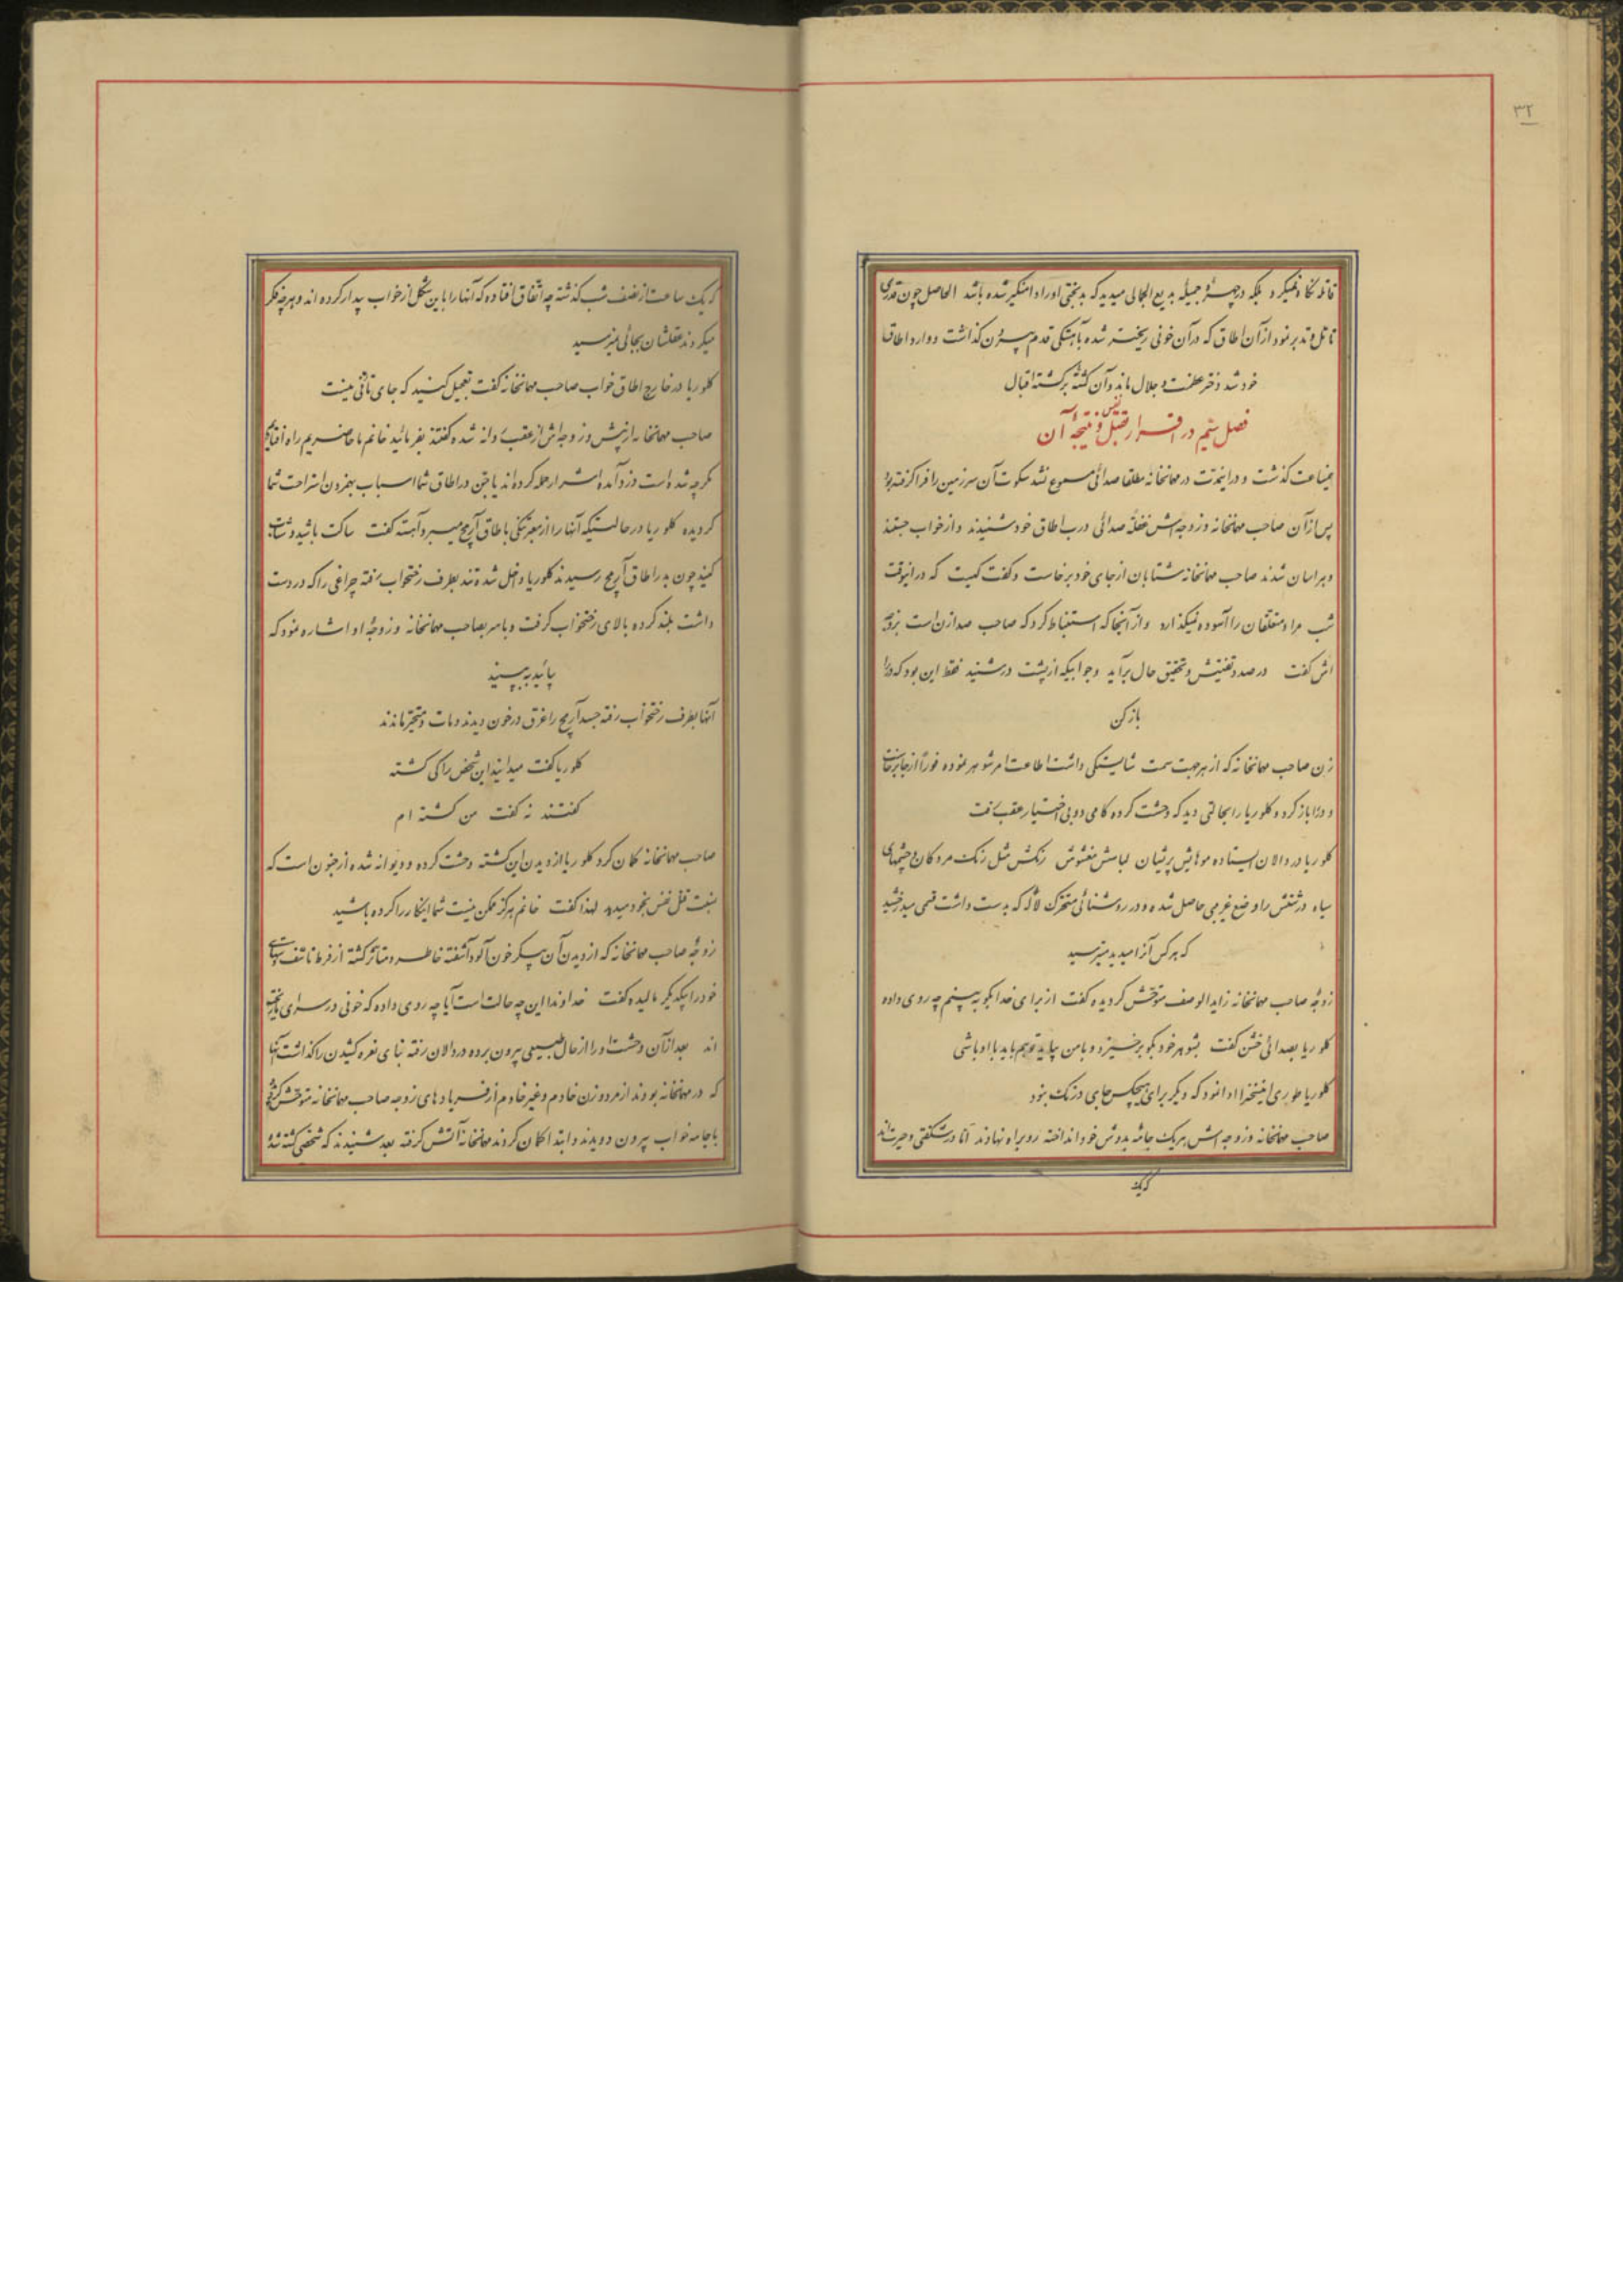 ۳۲
قاتله نگاه نمیکرد بلکه در چهرهٔ جمیلهٔ بدیع الجمالی میدید که بدبختی او را دامنگیر شده باشد الحاصل چون قدری
تامل و تدبر نمود از آن اطاق که در آن خونی ریخته شده بآهستگی قدم بیرون گذاشت و وارد اطاق
خود شد دختر عظمت و جلال ماند و آن کشتهٔ برگشته اقبال
فصل ستم در اقرار بقتل نفس و نتیجه آن
نیمساعت گذشت و در اینمدت در مهمانخانه مطلقا صدائی مسموع نشد سکوت آن سرزمین را فرا گرفته بود
پس از آن صاحب مهمانخانه و زوجه‌اش غفلة صدائی درب اطاق خود شنیدند و از خواب جستند
و هراسان شدند صاحب مهمانخانه شتابان از جای خود برخاست و گفت کیست که در اینوقت
شب مرا و متعلقان را آسوده نمیگذارد و از آنجا که استنباط کرد که صاحب صدا زن است بزوجه
اش گفت در صدد تفتیش و تحقیق حال برآید و جوابیکه از پشت در شنید فقط این بود که در را
باز کن
زن صاحب مهمانخانه که از هر جهت سمت شایستگی داشت اطاعت امر شوهر نموده فوراً از جا برخاست
و در را باز کرد و کلوریا را بحالتی دید که وحشت کرده کامی دو بی اختیار عقب رفت
کلوریا در دالان ایستاده موهایش پریشان لباسش مغشوش رنگش مثل رنگ مردگان و چشمهای
سیاه درشتش را وضع غریبی حاصل شده و در روشنائی متحرک لاله که بدست داشت قسمی میدرخشید
که هر کس آنرا میدید میترسید
زوجهٔ صاحب مهمانخانه زاید الوصف متوحش گردیده گفت از برای خدا بگو ببینم چه روی داده
کلوریا بصدائی خشن گفت بشوهر خود بگو برخیزد و با من بیاید تو هم باید با او باشی
کلوریا طوری اینسخن را ادا نمود که دیگر برای هیچکس جای درنگ نبود
صاحب مهمانخانه و زوجه اش هر یک جامهٔ بدوش خود انداخته رو براه نهادند اما در شگفتی و حیرت‌اند
که یک
که یک ساعت از نصف شب گذشته چه اتفاق افتاده که آنها را باین شکل از خواب بیدار کرده اند و هر چه فکر
میکردند عقلشان بجائی نمیرسید
کلوریا در خارج اطاق خواب صاحب مهمانخانه گفت تعجیل کنید که جای تأنی نیست
صاحب مهمانخانه از پیش و زوجه‌اش از عقب روانه شده گفتند بفرمائید خانم ما حاضریم راه افتادیم
مگر چه شده است دزد آمده اشرار حمله کرده‌اند یا جن در اطاق شما اسباب بهم زدن استراحت شما
گردیده کلوریا در حالتیکه آنها را از معبر تنگی باطاق آریج میبرد آهسته گفت ساکت باشید و شتاب
کنید چون بدر اطاق آریج رسیدند کلوریا داخل شده تند بطرف رختخواب رفته چراغی را که در دست
داشت بلند کرده بالای رختخواب گرفت و با سر بصاحب مهمانخانه و زوجهٔ او اشاره نمود که
بیائید ببینید
آنها بطرف رختخواب رفته جسد آریج را غرق در خون دیدند و مات و متحیر ماندند
کلوریا گفت میدانید این شخص را کی کشته
گفتند نه گفت من کشته ام
صاحب مهمانخانه گمان کرد کلوریا از دیدن این کشته وحشت کرده و دیوانه شده از جنون است که
نسبت قتل نفس بخود میدهد لهذا گفت خانم هرگز ممکن نیست شما اینکار را کرده باشید
زوجهٔ صاحب مهمانخانه که از دیدن آن پیکر خون آلود آشفته خاطر و متاثر گشته از فرط تاسف دستهای
خود را بیکدیگر مالیده گفت خداوندا این چه حالت است آیا چه روی داده که خونی در سرای ما ریخته
اند بعد از آن وحشت او را از حال طبیعی بیرون برده در دالان رفته بنای نعره کشیدن را گذاشت آنها
که در مهمانخانه بودند از مرد و زن خادم و غیر خادم از فریادهای زوجه صاحب مهمانخانه متوحش گشته
با جامه خواب بیرون دویدند و ابتدا گمان کردند مهمانخانه آتش گرفته بعد شنیدند که شخصی کشته شده